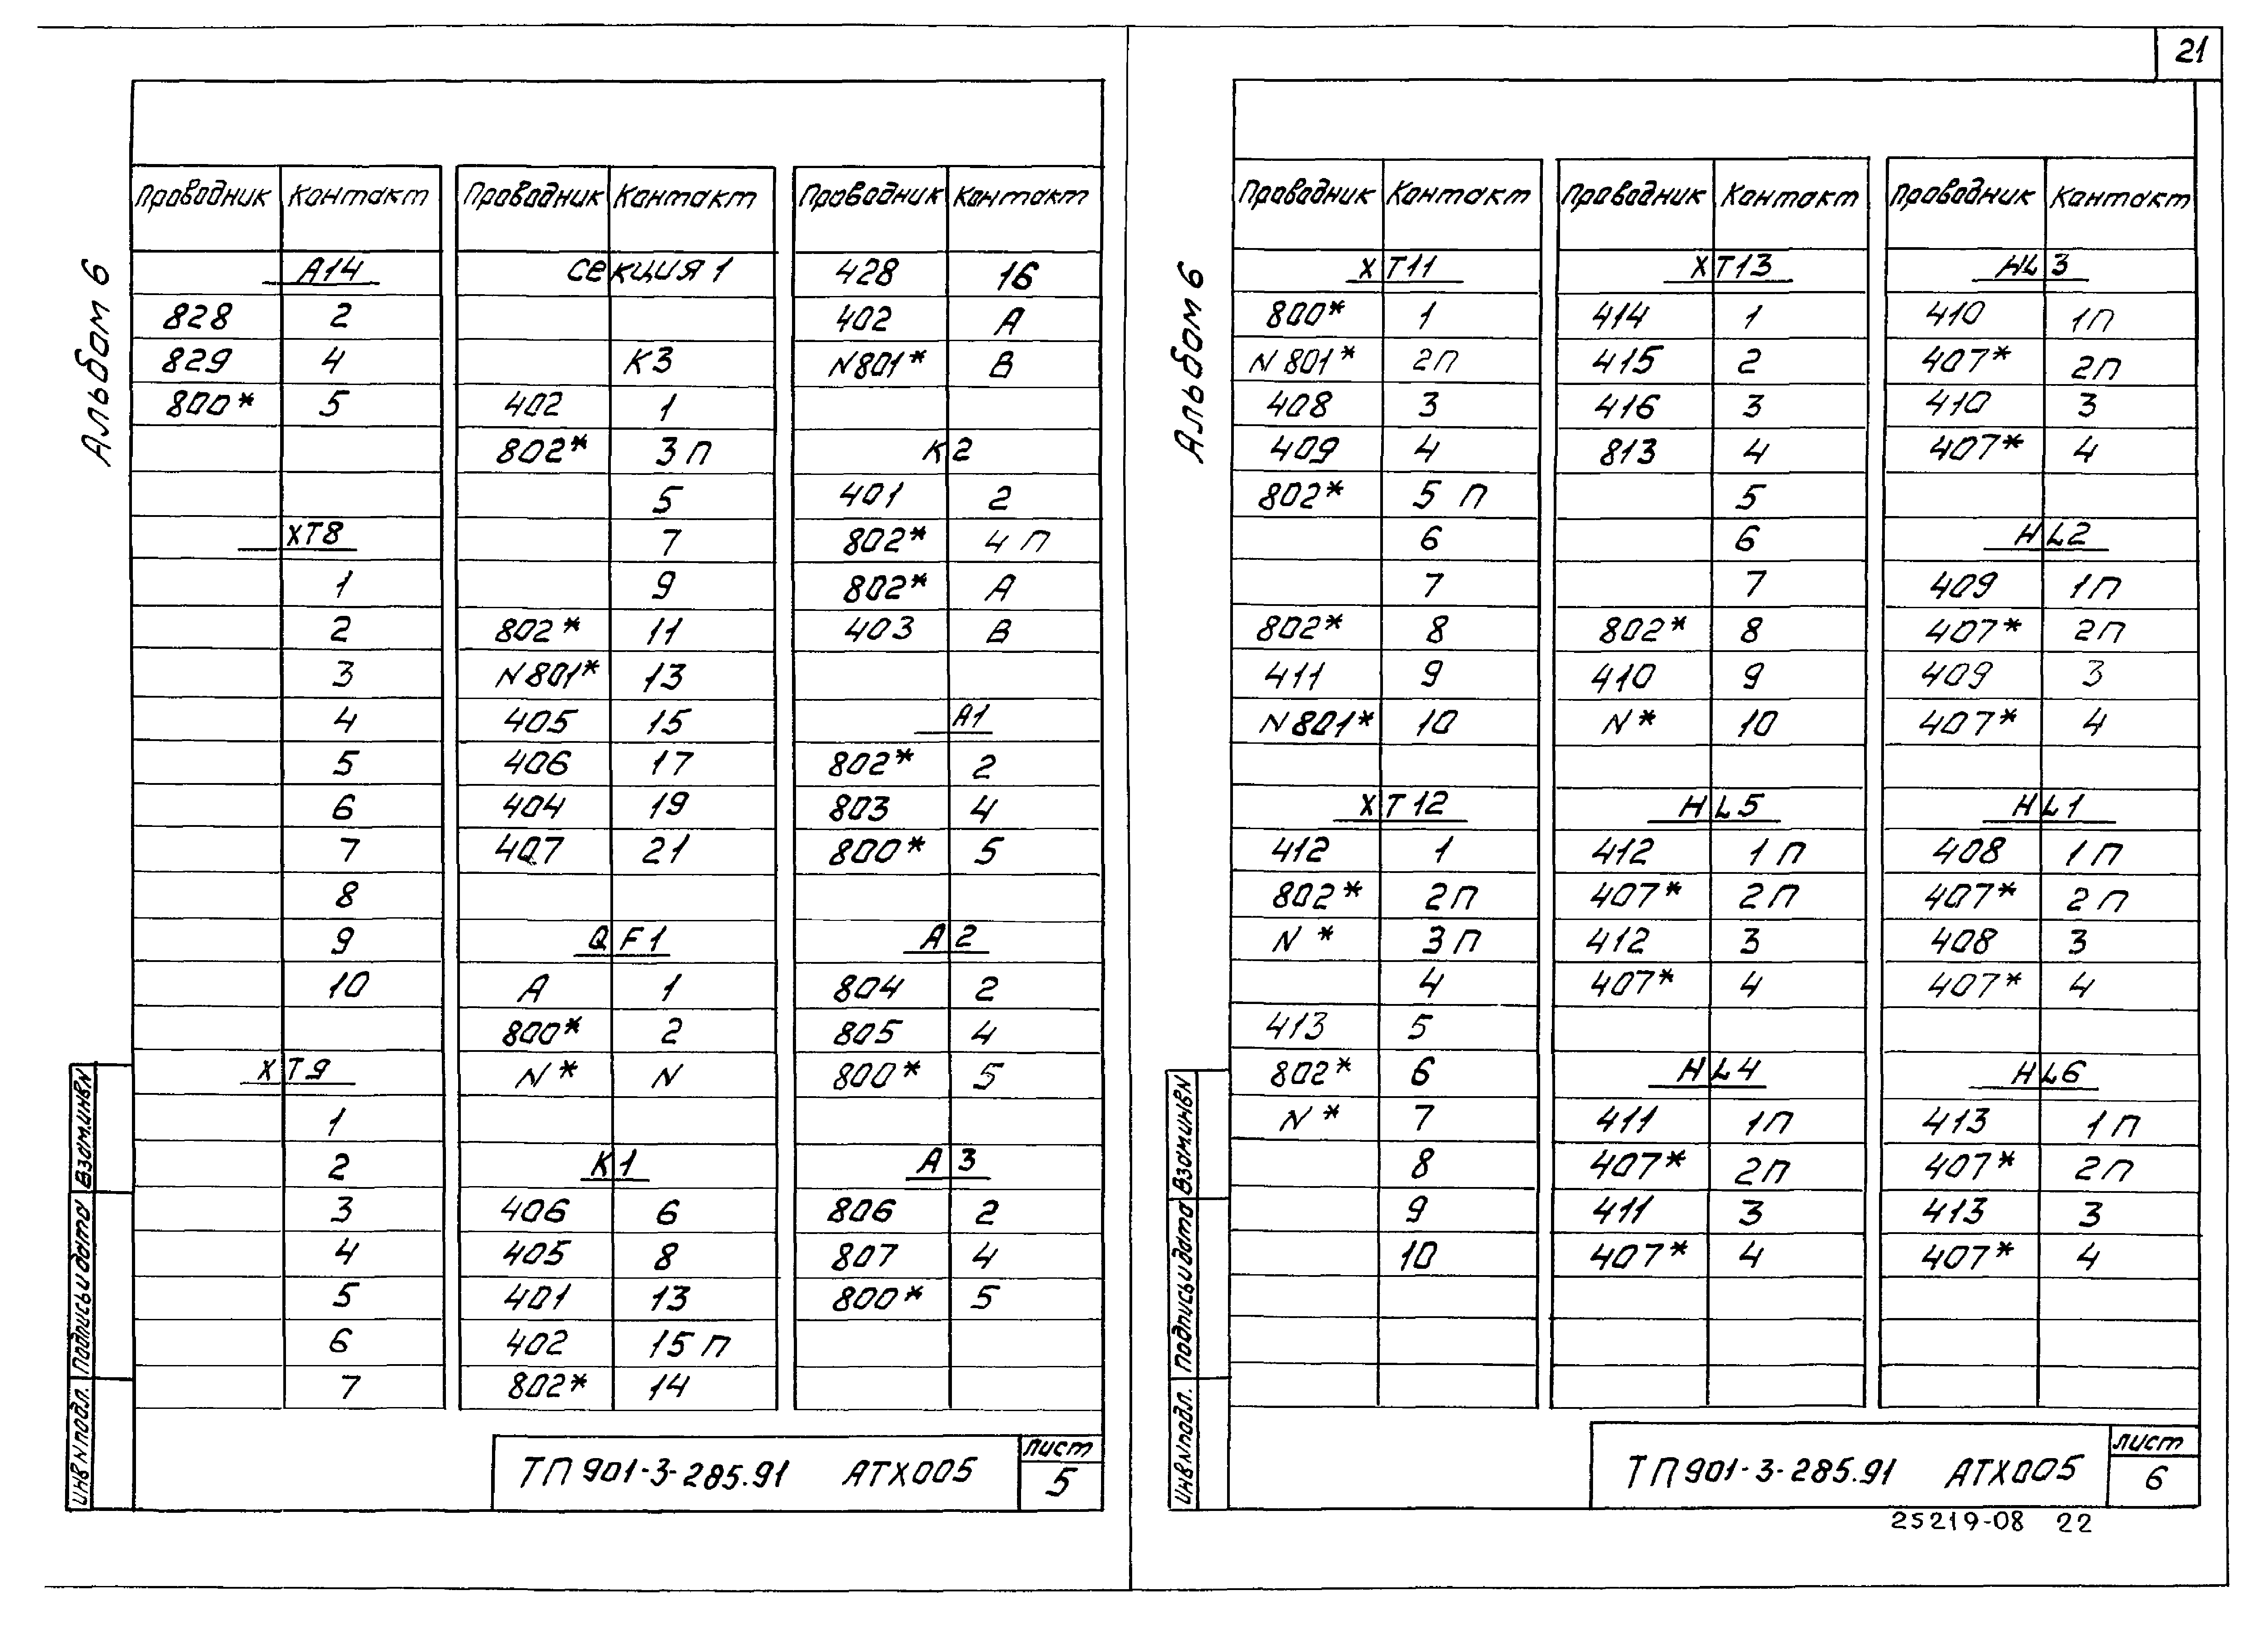 21
Альбом 6
Проводник Контакт
А14
828 2
829 4
800* 5
ХТ8
1
2
3
4
5
6
7
8
9
10
ХТ9
1
2
3
4
5
6
7
Проводник Контакт
Секция 1
К3
402 1
802* 3П
5
7
9
802* 11
N801* 13
405 15
406 17
404 19
407 21
QF1
А 1
800* 2
N* N
К1
406 6
405 8
401 13
402 15П
802* 14
Проводник Контакт
428 16
402 А
N801* В
К2
401 2
802* 4П
802* А
403 В
А1
802* 2
803 4
800* 5
А2
804 2
805 4
800* 5
А3
806 2
807 4
800* 5
Взам.инв№
Подпись и дата
инв№подл.
ТП 901-3-285.91 АТХ005
лист
5
Альбом 6
Проводник Контакт
ХТ11
800* 1
N801* 2П
408 3
409 4
802* 5П
6
7
802* 8
411 9
N801* 10
ХТ12
412 1
802* 2П
N* 3П
4
413 5
802* 6
N* 7
8
9
10
Проводник Контакт
ХТ13
414 1
415 2
416 3
813 4
5
6
7
802* 8
410 9
N* 10
HL5
412 1П
407* 2П
412 3
407* 4
HL4
411 1П
407* 2П
411 3
407* 4
Проводник Контакт
HL3
410 1П
407* 2П
410 3
407* 4
HL2
409 1П
407* 2П
409 3
407* 4
HL1
408 1П
407* 2П
408 3
407* 4
HL6
413 1П
407* 2П
413 3
407* 4
Взам.инв№
Подпись и дата
инв№подл.
ТП 901-3-285.91 АТХ005
лист
6
25219-08 22